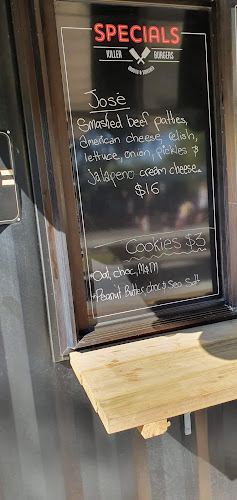 SPECIALS
KILLER BURGERS
José
Smashed beef patties,
American cheese, relish,
lettuce, onion, pickles &
Jalapeno cream cheese.
$16
Cookies $3
•Oat, choc, M&M
•Peanut Butter choc & Sea Salt